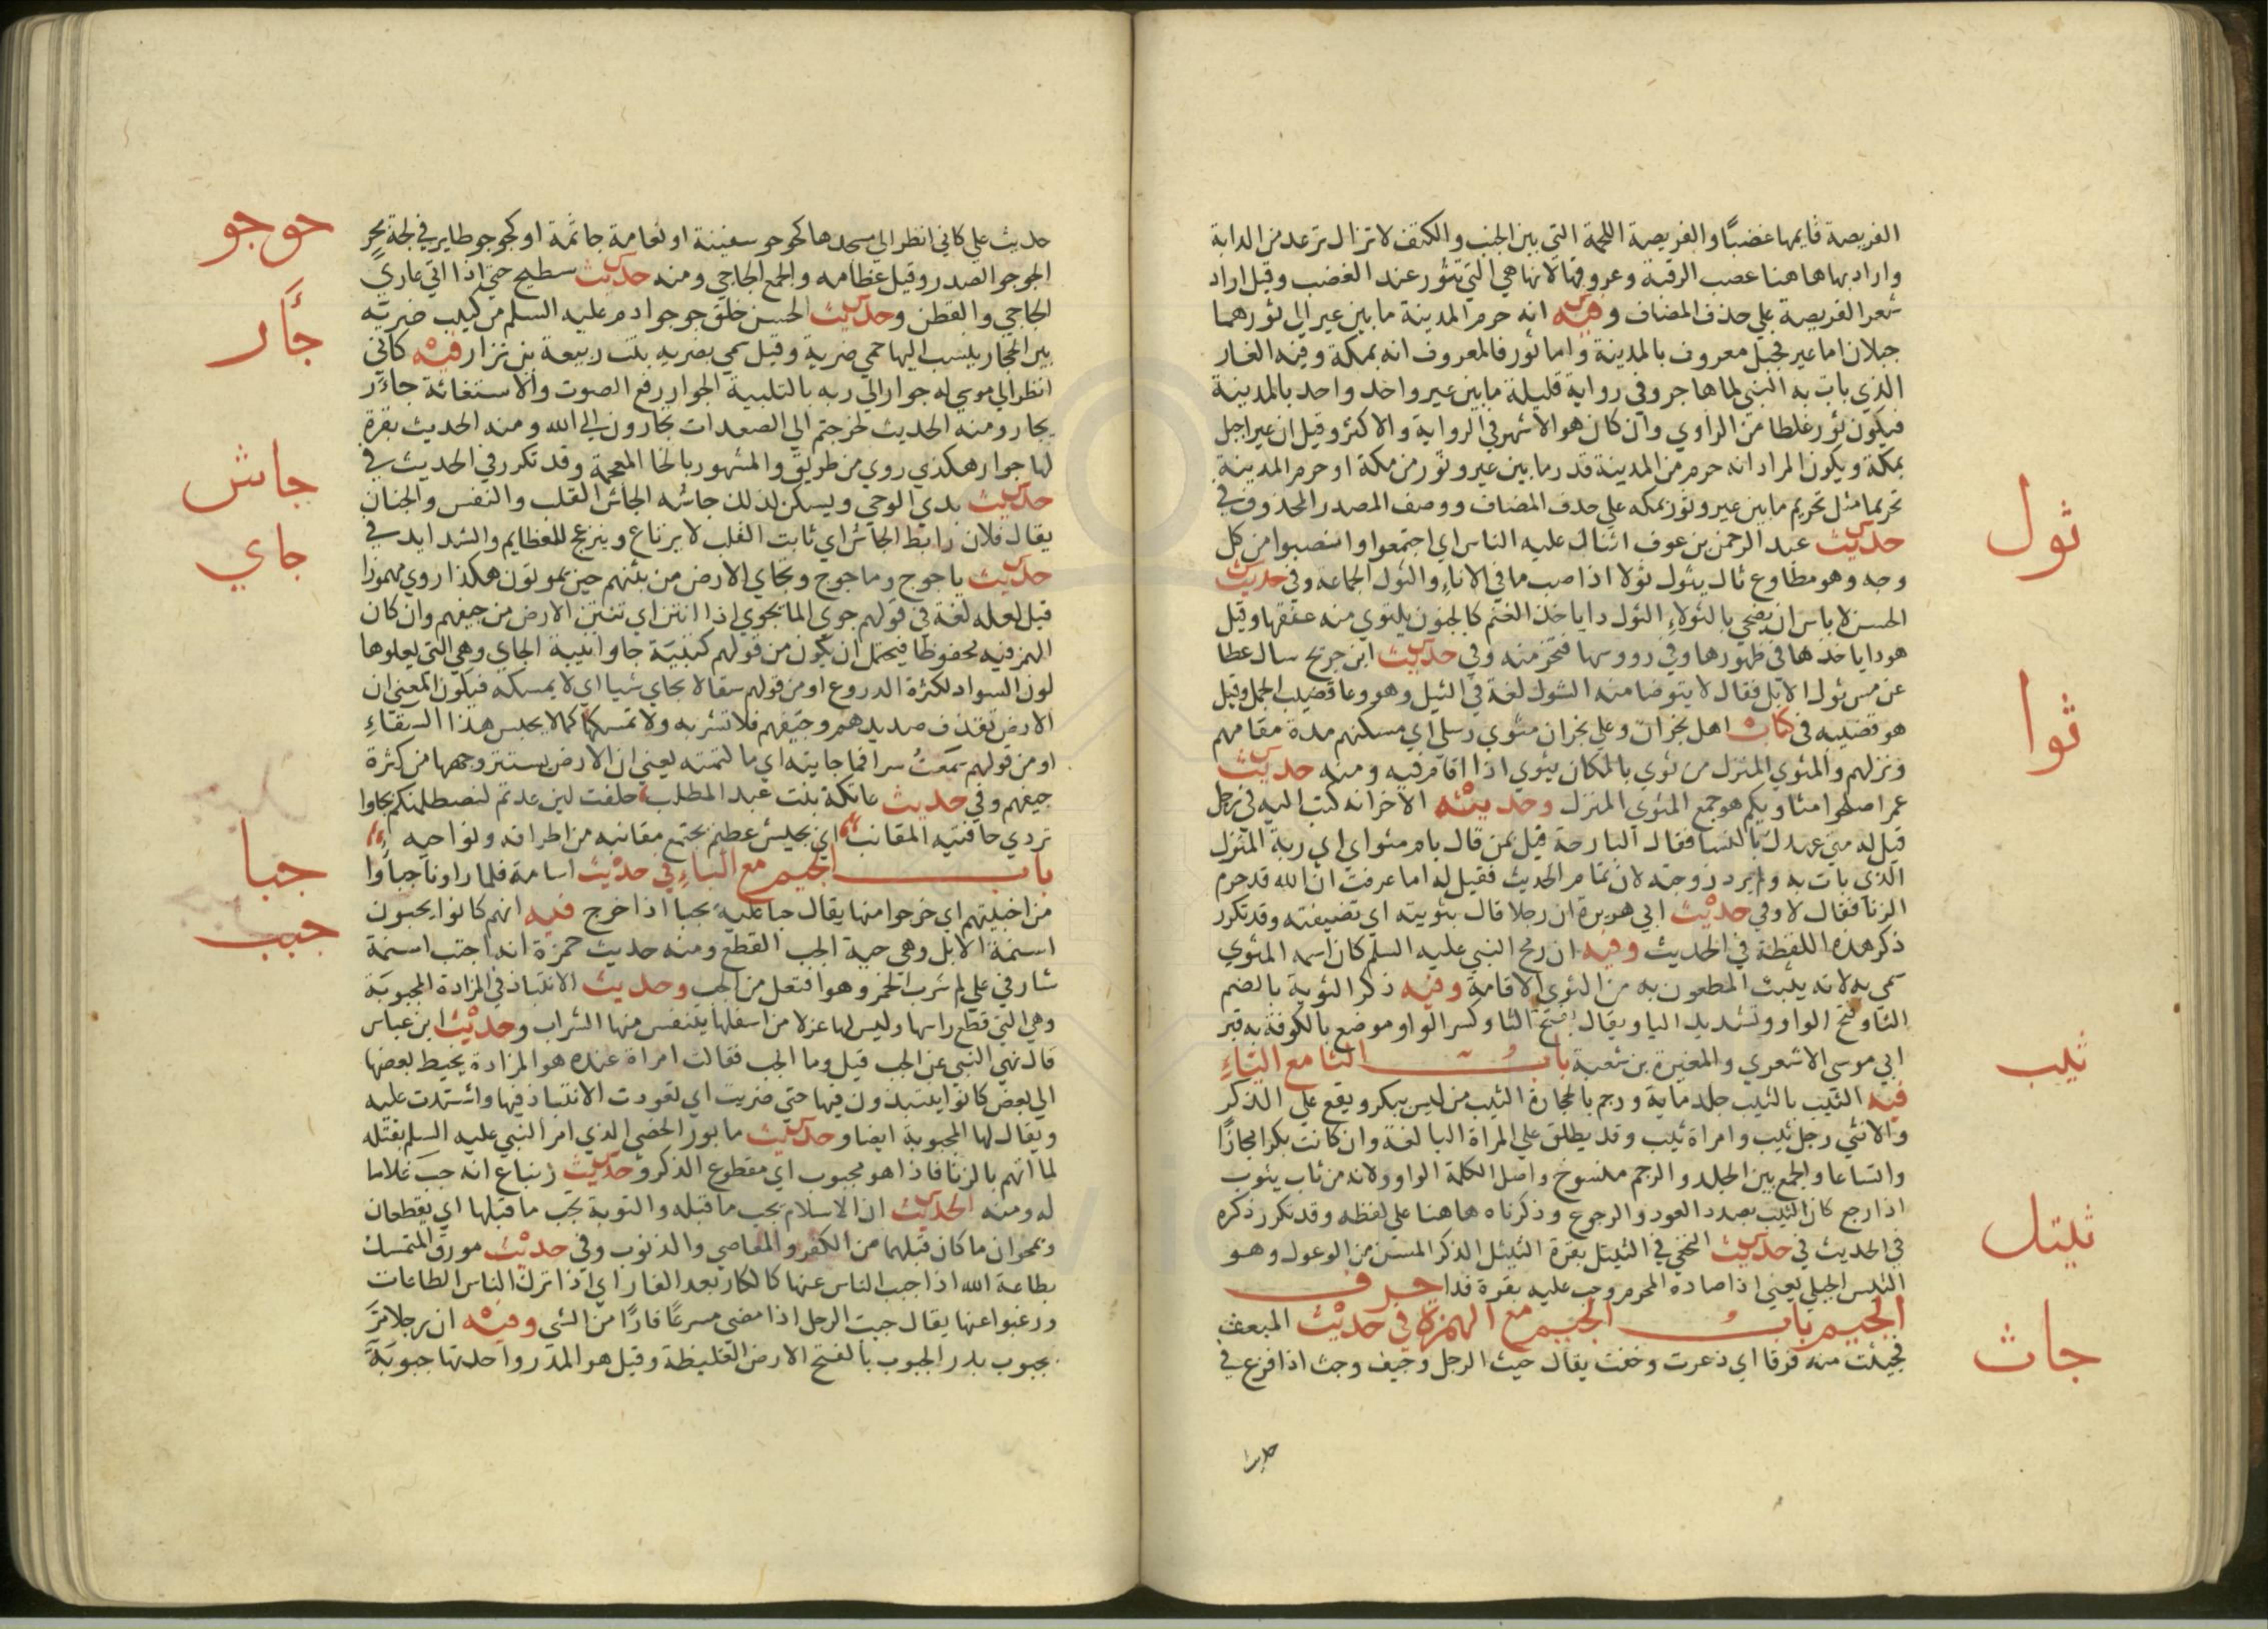 الفريصة قايمها غضبًا والفريصة اللحمة التي بين الجنب والكتف لا تزال ترعد من الدابة
واراد بها هاهنا عصب الرقبة وعروقها لانها هي التي تثور عند الغضب وقيل اراد
شعر الفريصة علي حذف المضاف وفيه انه حرم المدينة ما بين عير الي ثور هما
جبلان اما عير فجبل معروف بالمدينة واما ثور فالمعروف انه بمكة وفيه الغار
الذي بات به النبي لما هاجر وفي رواية قليلة ما بين عير واحد واحد بالمدينة
فيكون ثور غلطا من الراوي وان كان هو الاشهر في الرواية والاكثر وقيل ان عير اجبل
بمكة ويكون المراد انه حرم من المدينة قدر ما بين عير وثور من مكة او حرم المدينة
تحريما مثل تحريم ما بين عير وثور بمكه علي حدف المضاف ووصف المصدر المحذوف في
ثول
حديث عبد الرحمن بن عوف انثال عليه الناس اي اجتمعوا وانصبوا من كل
وجه وهو مطاوع ثال يثول ثولا اذا صب ما في الاناء والثول الجماعه وفي حديث
الحسن لا باس ان يضحي بالثولاء الثول داياخذ الغنم كالجنون يلتوي منه عنقها وقيل
هو داياخدها في ظهورها وفي رووسها فتخر منه وفي حديث ابن جريج سال عطا
عن مس ثول الابل فقال لا يتوضا منه الثول لغة في الثيل وهو وعا قضيب الجمل وقيل
ثوا
هو قضيبه في كتاب اهل نجران وعلي نجران مثوي رسلي اي مسكنهم مدة مقامهم
ونزلهم والمثوي المنزل من ثوي بالمكان يثوي اذا اقام فيه ومنه حديث
عمر اصلحوا مثاويكم هو جمع المثوي المنزل وحديثه الاخر انه كتب اليه في رجل
قيل له متي عهدك بالنسا فقال البارحة قيل بمن قال بام مثواي اي ربة المنزل
الذي بات به ولم يرد زوجته لان تمام الحديث فقيل له اما عرفت ان الله قد حرم
الزنا فقال لا وفي حديث ابي هريرة ان رجلا قال بثويته اي تضيفته وقد تكرر
ذكر هذه اللفظة في الحديث وفيه ان رمح النبي عليه السلم كان اسمه المثوي
سمي به لانه يثبت المطعون به من الثوي الاقامة وفيه ذكر الثوية بالضم
الثا وفتح الواو وتشديد اليا ويقال بفتح الثا وكسر الواو موضع بالكوفة به قبر
ابي موسي الاشعري والمغيرة بن شعبة باب الثا مع الياء
ثيب
فيه الثيب بالثيب جلد ماية ورجم بالحجارة الثيب من ليس ببكر ويقع علي الذكر
والانثي رجل ثيب وامراة ثيب وقد يطلق علي المراة البالغة وان كانت بكرا مجازًا
واتساعا والجمع بين الجلد والرجم منسوخ واصل الكلمة الواو ولانه من ثاب يثوب
اذا رجع كان الثيب بصدد العود والرجوع وذكرناه هاهنا علي لفظه وقد تكرر ذكره
ثيتل
في الحديث في حديث النخعي في الثيتل بقرة الثيتل الذكر المسن من الوعول وهو
التيس الجبلي يعني اذا صاده المحرم وجب عليه بقرة فدا حرف
جاث
الجيم باب الجيم مع الهمزة في حديث المبعث
فجيثت منه فرقا اي ذعرت وخفت يقال جيث الرجل وجيف وجث اذا فزع في
حديث
جوجو
حديث علي كاني انظر الي مسجدها كجوجو سفينة او نعامة جاثمة او كجوجو طاير في لجة بحر
الجوجو الصدر وقيل عظامه والجمع الجاجي ومنه حديث سطيح حتي اذا اتي عاري
الجاجي والقطن وحديث الحسن خلق جوجو ادم عليه السلم من كثيب ضرية
جأر
بير بالحجاز ينسب اليها حمي ضرية وقيل سمي بضريه بنت ربيعة بن نزار فيه كاني
انظر الي موسي له جوار الي ربه بالتلبية الجوار رفع الصوت والاستغاثة جاءر
يجار ومنه الحديث لخرجتم الي الصعدات تجارون الي الله ومنه الحديث بقرة
لها جوار هكذي روي من طريق والمشهور بالخا المعجمة وقد تكرر في الحديث في
جاش
حديث بدي الوحي ويسكن لذلك جاشه الجاش القلب والنفس والجنان
يقال فلان رابط الجاش اي ثابت القلب لا يرتاع وينزعج للعظايم والشدايد في
جاي
حديث ياجوج وماجوج وتجاي الارض من نتنهم حين يموتون هكذا روي مهموزا
قيل لعله لغة في قولهم جوي الما يجوي اذا انتن اي تنتن الارض من جيفهم وان كان
الهمز فيه محفوظا فيحتمل ان يكون من قولهم كتيبة جاوا بينة الجاي وهي التي يعلوها
لون السواد لكثرة الدروع او من قولهم سقا لا يجاي شيا اي لا يمسكه فيكون المعني ان
الارض تقذف صديدهم وجيفهم فلا تشربه ولا تمسكها كما لا يحبس هذا السقاء
او من قولهم سمعت سرا فما جايته اي ما كتمته يعني ان الارض يستتر وجهها من كثرة
جيفهم وفي حديث عاتكة بنت عبد المطلب حلفت لين عدتم لنصطلمنكم بجاوا
تردي حافتيه المقانب اي بجيش عظيم يجتمع مقانبه من اطرافه ونواحيه
جبا
باب الجيم مع الباء في حديث اسامة فلما راونا جباوا
من اخبيتهم اي خرجوا منها يقال جبا عليه يجبا اذا خرج فيه انهم كانوا يجبون
جبب
اسنمة الابل وهي حية الجب القطع ومنه حديث حمزة انه اجتب اسنمة
شارفي علي لما شرب الخمر وهو افتعل من الجب وحديث الانتباذ في المزادة المجبوبة
وهي التي قطع راسها وليس لها عزلا من اسفلها يتنفس منها الشراب وحديث ابن عباس
قال نهي النبي عن الجب قيل وما الجب فقالت امراة عنده هو المزادة يخيط بعضها
الي بعض كانوا ينتبذون فيها حتي ضريت اي تعودت الانتباذ فيها واشتدت عليه
ويقال لها المجبوبة ايضا وحديث مابور الخصي الذي امر النبي عليه السلم بقتله
لما اتهم بالزنا فاذا هو مجبوب اي مقطوع الذكر وحديث زنباع انه جب غلاما
له ومنه الحديث ان الاسلام يجب ما قبله والتوبة تجب ما قبلها اي يقطعان
ويمحوان ما كان قبلهما من الكفر والمعاصي والذنوب وفي حديث مورق المتمسك
بطاعة الله اذا جبب الناس عنها كالكار بعد الفار اي اذا ترك الناس الطاعات
ورغبوا عنها يقال جبب الرجل اذا مضي مسرعًا فارًا من الشي وفيه ان رجلا مر
بجبوب بدر الجبوب بالفتح الارض الغليظة وقيل هو المدر واحدتها جبوبة